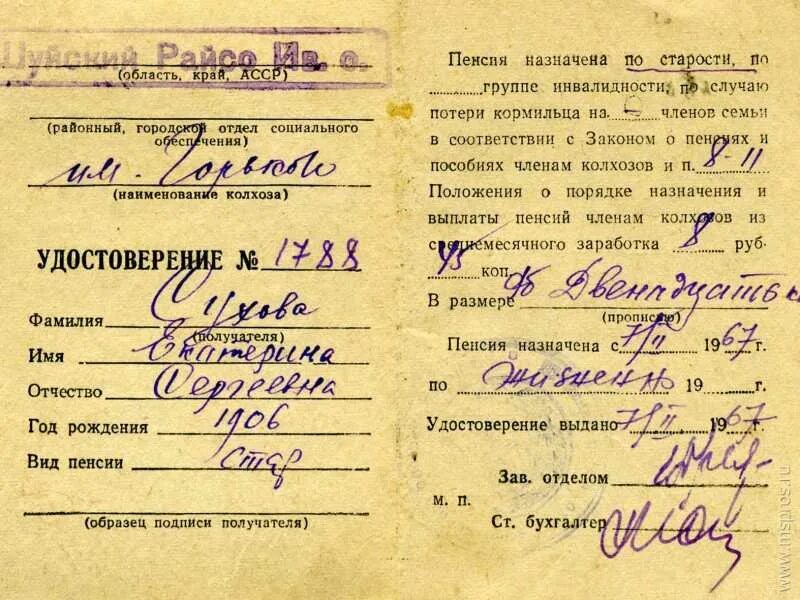 Шуйский Райсо Ив. о.
(область, край, АССР)
(районный, городской отдел социального
обеспечения)
им. Горького
(наименование колхоза)
УДОСТОВЕРЕНИЕ № 1788
Фамилия Сухова
(получателя)
Имя Екатерина
Отчество Сергеевна
Год рождения 1906
Вид пенсии стар
(образец подписи получателя)
Пенсия назначена по старости, по
группе инвалидности, по случаю
потери кормильца на членов семьи
в соответствии с Законом о пенсиях и
пособиях членам колхозов и п. 8-11
Положения о порядке назначения и
выплаты пенсий членам колхозов из
среднемесячного заработка 8 руб.
45 коп.
В размере Двенадцать
(прописью)
Пенсия назначена с 7/II 1967 г.
по жизненно 19 г.
Удостоверение выдано 7/II 1967
Зав. отделом
м. п.
Ст. бухгалтер
www.rutsdrosin